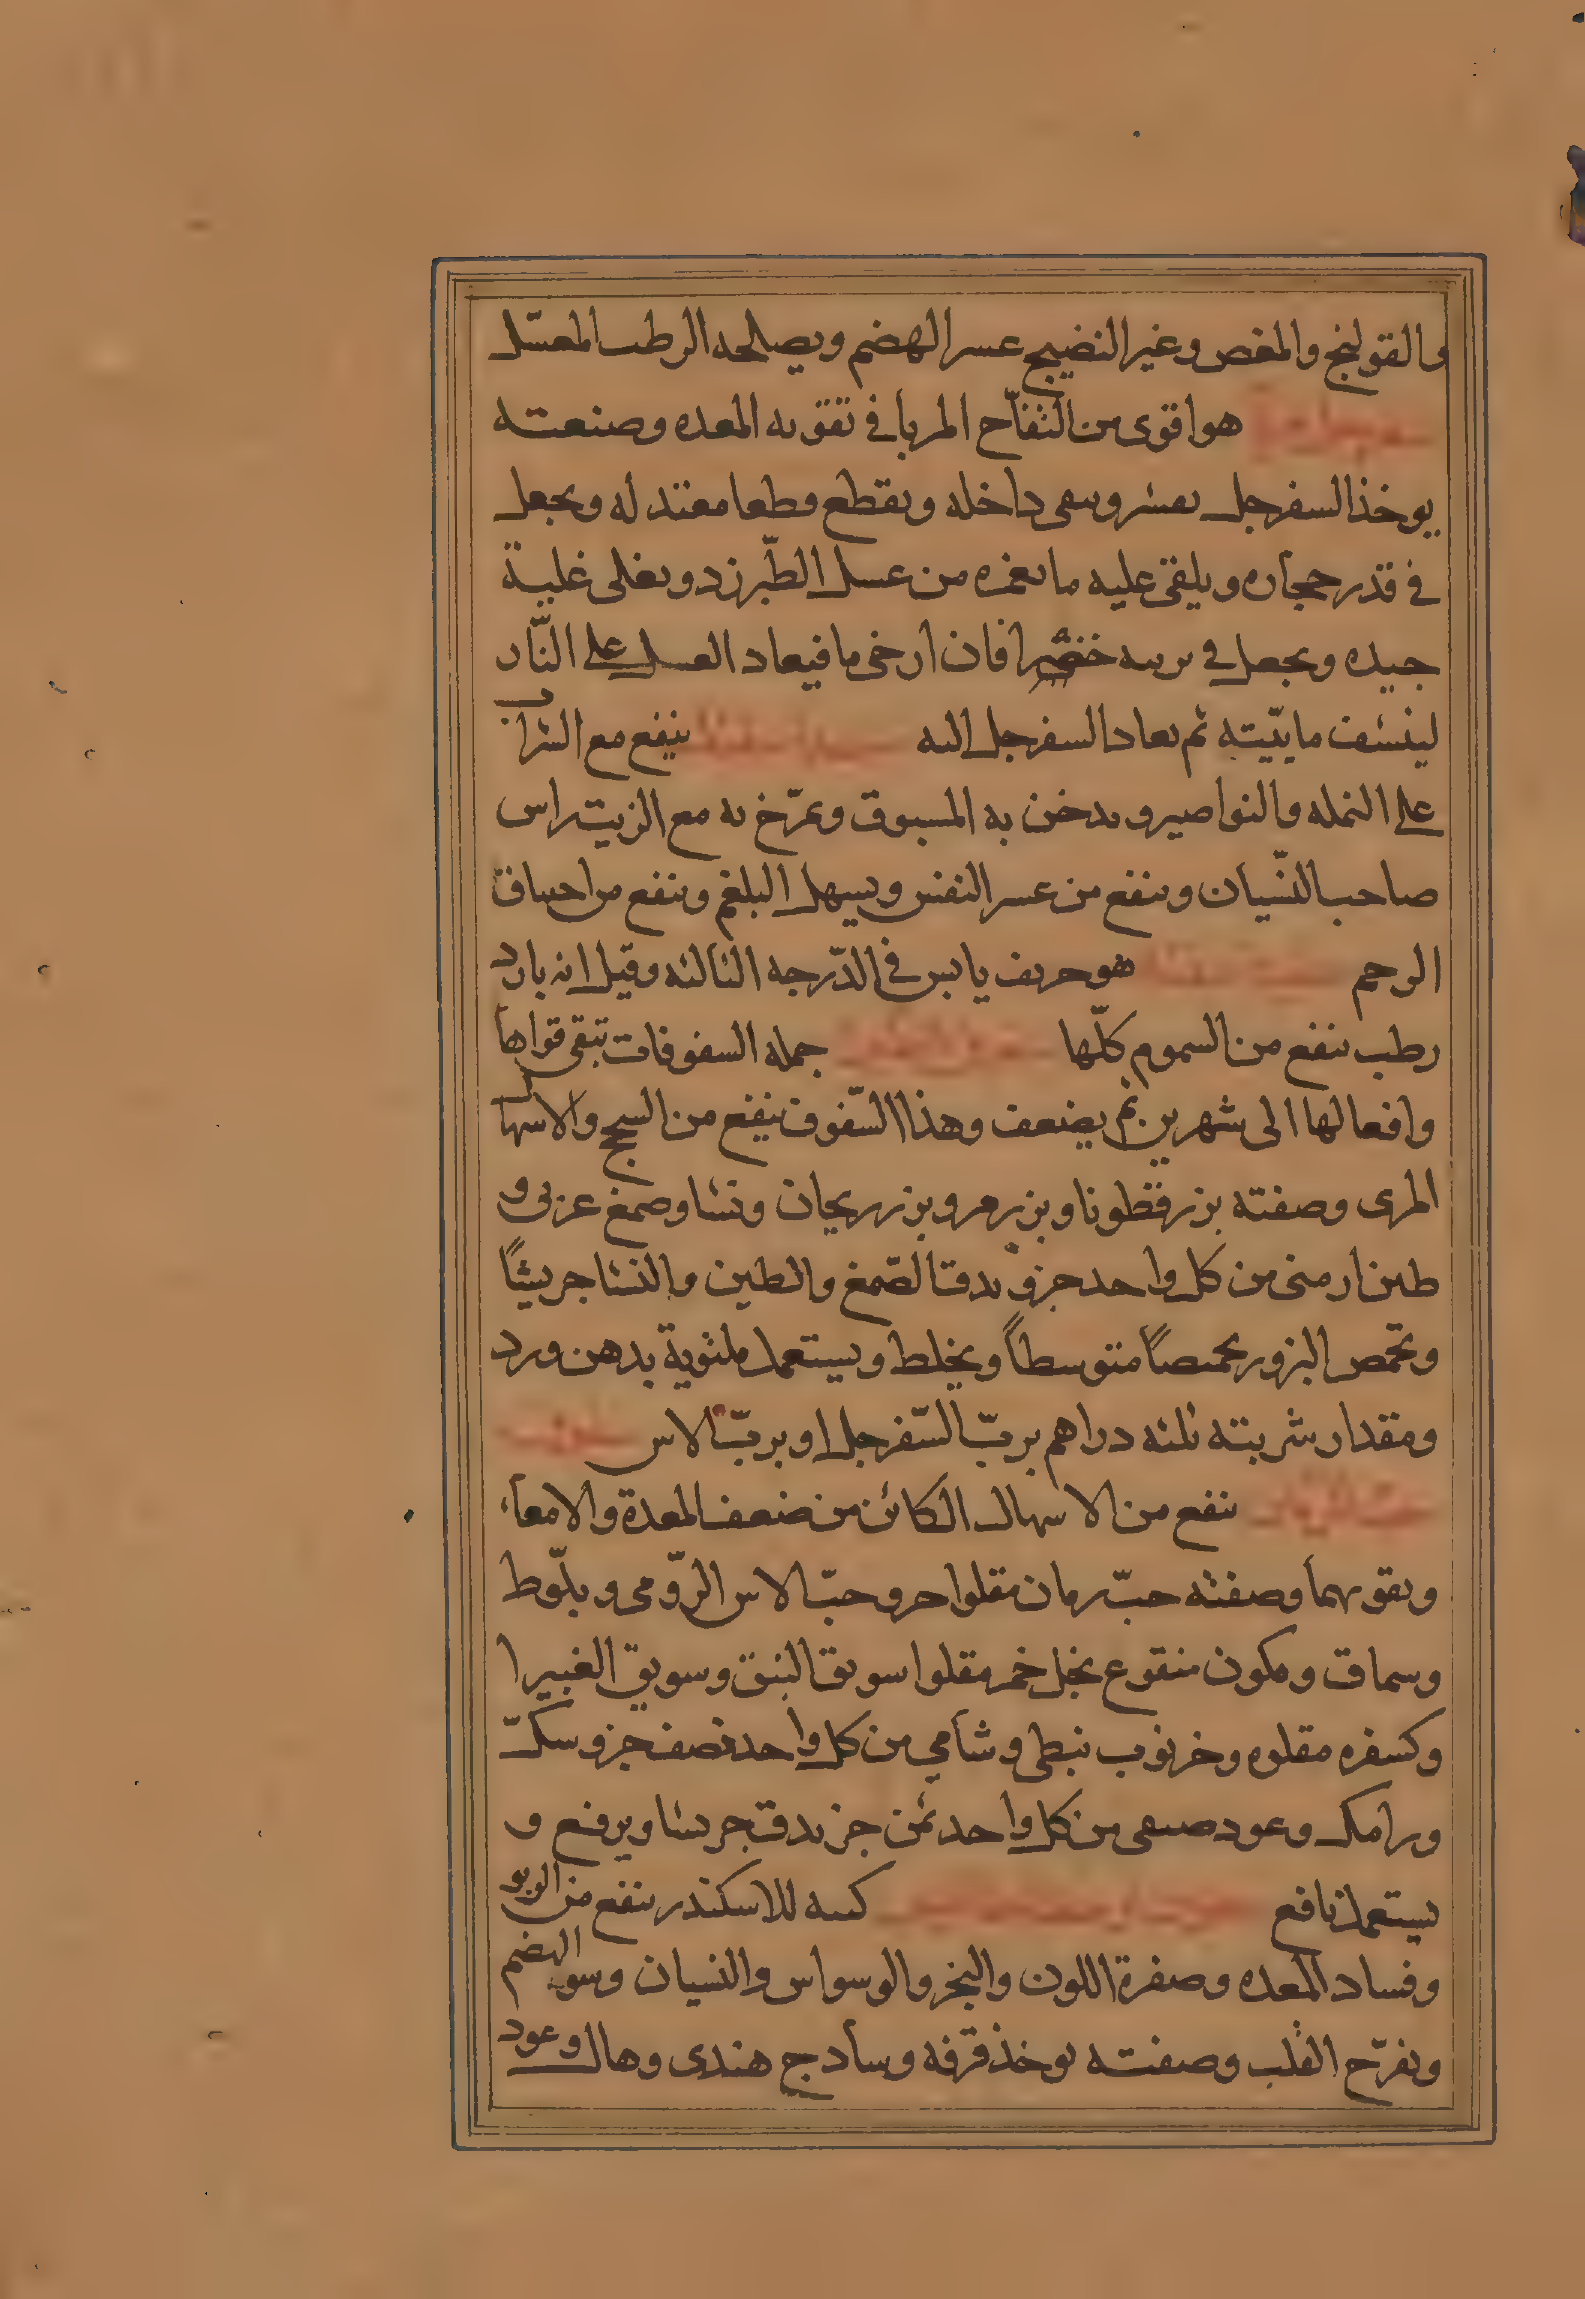 والقولنج والمغص وغير النضيج عسر الهضم ويصلحه الرطب المعسّل
هو اقوى من التفاّح المربا في تقويه المعده وصنعته
يوخذ السفرجل يقشر وينقى داخله ويقطع قطعا معتدله ويجعل
في قدر حجاره ويلقى عليه ما يغمره من عسل الطّبرزد ويغلى غلية
جيده ويجعل في برنيه خضرا فان ارخى ما فيعاد العسل على النّار
لينشف ماييّته ثم يعاد السفرجل اليه ينفع مع الشراب
على النمله والنواصير ويدخن به المسبوق ويمرّخ به مع الزيت راس
صاحب النّسيان وينفع من عسر النفس ويسهل البلغم وينفع من اختناق
الرحم هو حريف يابس في الدّرجه الثالثه وقيل انه بارد
رطب ينفع من السموم كلّها جمله السفوفات تبقى قواها
وافعالها الى شهرين ثم يضعف وهذا السّفوف ينفع من السحج والاسهال
المرى وصفته بزر قطونا وبزر مر وبزر ريحان ونشا وصمغ عربى و
طين ارمنى من كل واحد جزو يدق الصّمغ والطين والنشا جريشًا
وتحمص البزور تحمصًا متوسطاً ويخلط ويستعمل ملتوية بدهن ورد
ومقدار شربته ثلثه دراهم بربّ السّفرجل او بربّ الاس سفوف
حبّ الرمان ينفع من الاسهال الكائن من ضعف المعدة والامعاء
ويقويهما وصفته حبّ رمان مقلوا جزو حبّ الاس الرّومى وبلّوط
وسماق وكمون منقوع بخل خمر مقلوا سويق النبق وسويق الغبيرا
وكسفره مقلوه وخرنوب نبطى وشأمي من كل واحد نصف جزو سكّ
ورامك وعود صيفى من كل واحد ثمن جز يدق جريشا ويرفع و
يستعمل نافع كتبه للاسكندر ينفع من الربو
وفساد المعده وصفرة اللون والبخر والوسواس والنسيان وسو الهضم
ويفرّح القلب وصفته يوخذ قرفه وسأدج هندى وهال وعود